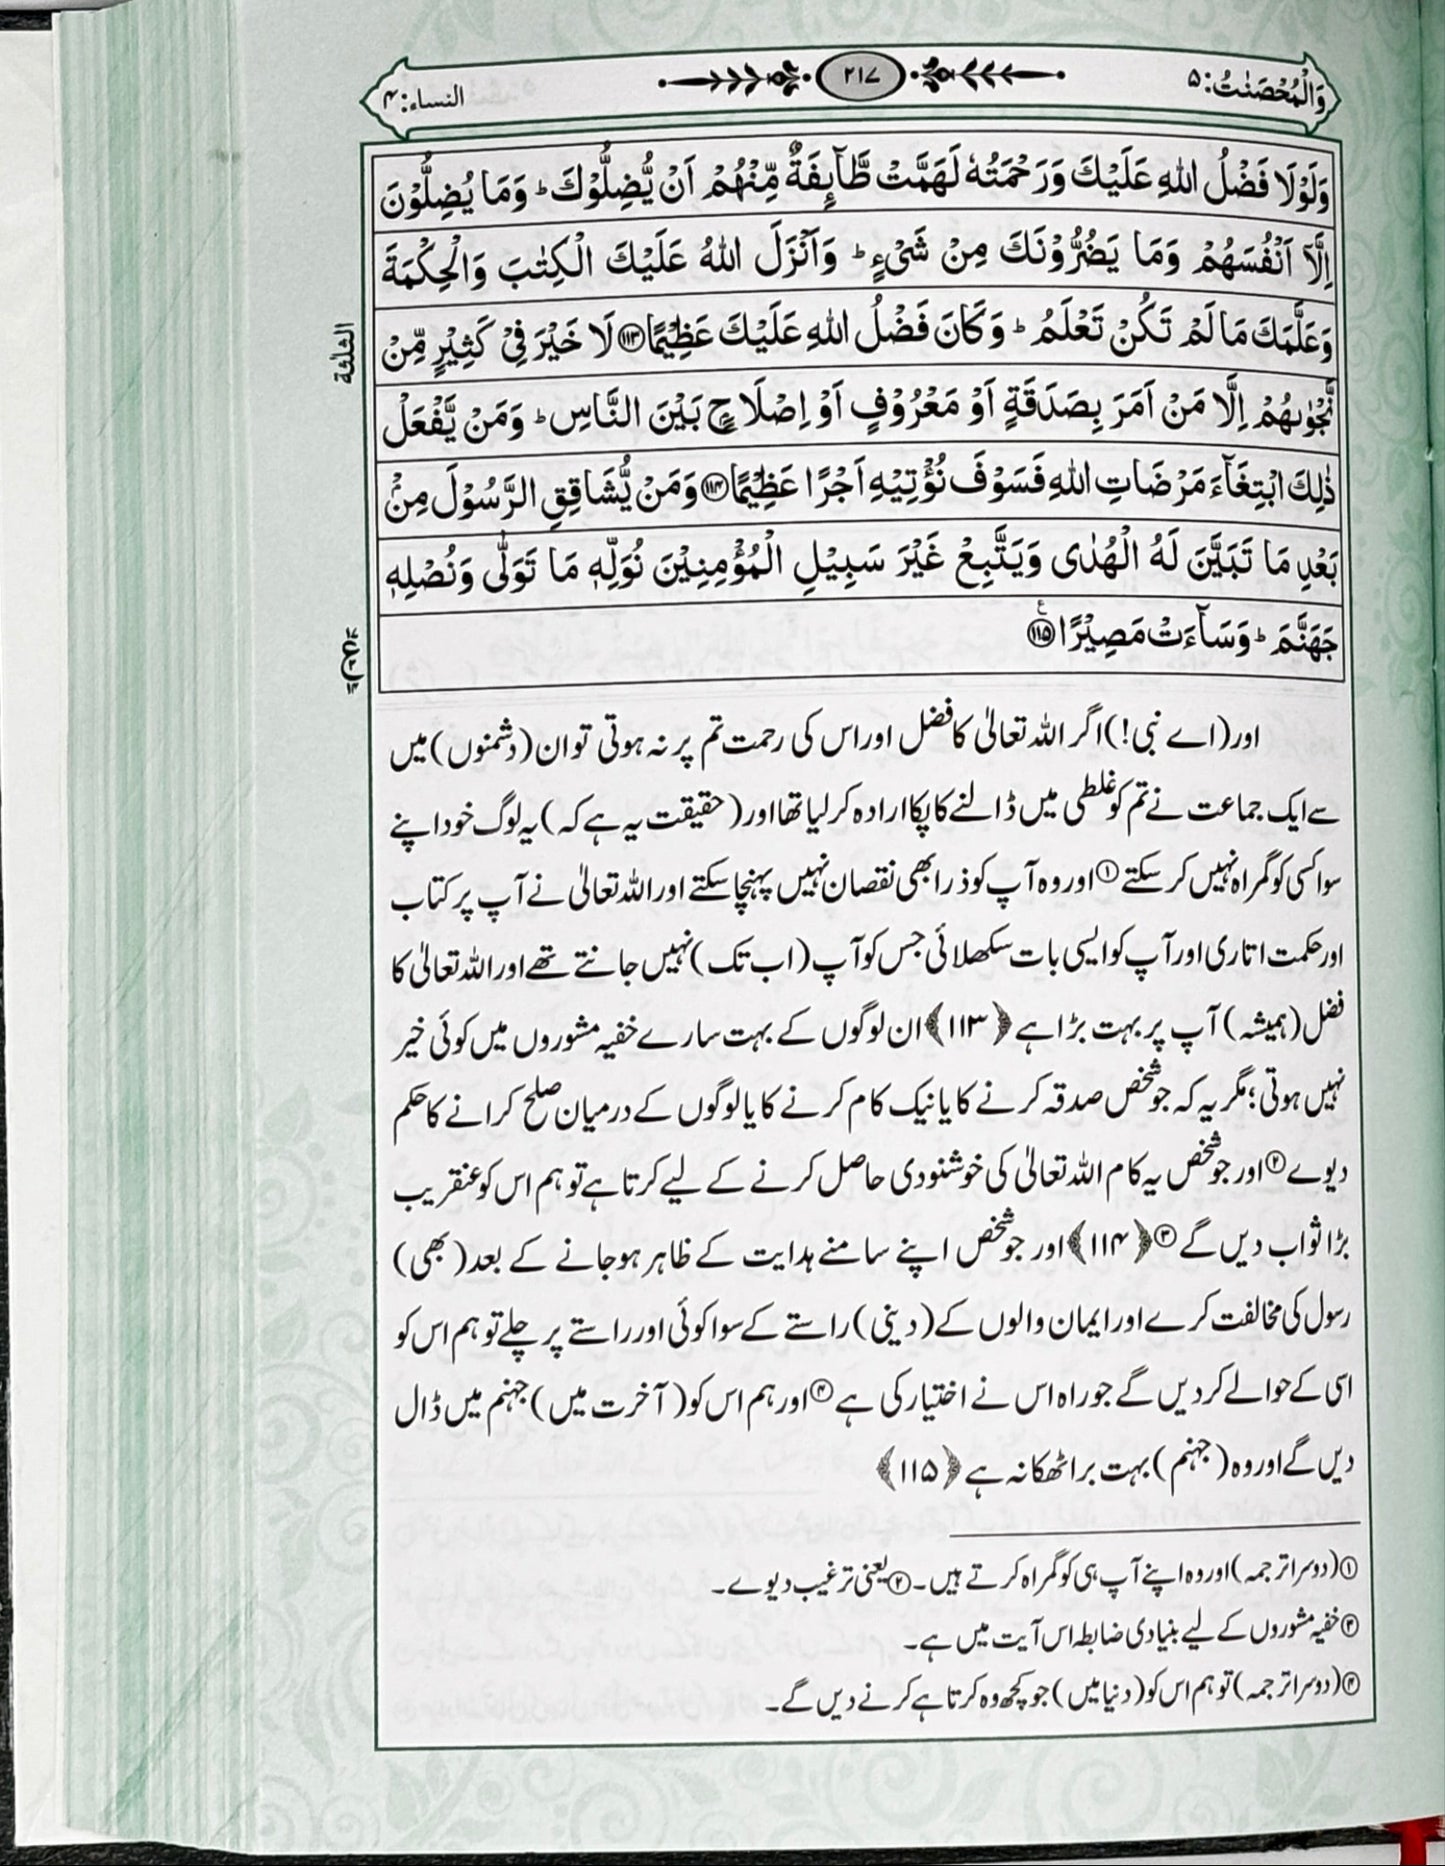 وَالْمُحْصَنٰتُ:۵
۲۱۷
النساء:۴
وَلَوْلَا فَضْلُ اللّٰهِ عَلَيْكَ وَرَحْمَتُهٗ لَهَمَّتْ طَّآىِٕفَةٌ مِّنْهُمْ اَنْ يُّضِلُّوْكَ ؕ وَمَا يُضِلُّوْنَ
اِلَّاۤ اَنْفُسَهُمْ وَمَا يَضُرُّوْنَكَ مِنْ شَیْءٍ ؕ وَاَنْزَلَ اللّٰهُ عَلَيْكَ الْكِتٰبَ وَالْحِكْمَةَ
وَعَلَّمَكَ مَا لَمْ تَكُنْ تَعْلَمُ ؕ وَكَانَ فَضْلُ اللّٰهِ عَلَيْكَ عَظِيْمًا ﴿۱۱۳﴾ لَا خَيْرَ فِيْ كَثِيْرٍ مِّنْ
نَّجْوٰىهُمْ اِلَّا مَنْ اَمَرَ بِصَدَقَةٍ اَوْ مَعْرُوْفٍ اَوْ اِصْلَاحٍۭ بَيْنَ النَّاسِ ؕ وَمَنْ يَّفْعَلْ
ذٰلِكَ ابْتِغَآءَ مَرْضَاتِ اللّٰهِ فَسَوْفَ نُؤْتِيْهِ اَجْرًا عَظِيْمًا ﴿۱۱۴﴾ وَمَنْ يُّشَاقِقِ الرَّسُوْلَ مِنْۢ
بَعْدِ مَا تَبَيَّنَ لَهُ الْهُدٰى وَيَتَّبِعْ غَيْرَ سَبِيْلِ الْمُؤْمِنِيْنَ نُوَلِّهٖ مَا تَوَلّٰى وَنُصْلِهٖ
جَهَنَّمَ ؕ وَسَآءَتْ مَصِيْرًا ﴿۱۱۵﴾ ع
الثلثة
اور (اے نبی!) اگر اللہ تعالیٰ کا فضل اور اس کی رحمت تم پر نہ ہوتی تو ان (دشمنوں) میں
سے ایک جماعت نے تم کو غلطی میں ڈالنے کا پکا ارادہ کر لیا تھا اور (حقیقت یہ ہے کہ) یہ لوگ خود اپنے
سوا کسی کو گمراہ نہیں کر سکتے ① اور وہ آپ کو ذرا بھی نقصان نہیں پہنچا سکتے اور اللہ تعالیٰ نے آپ پر کتاب
اور حکمت اتاری اور آپ کو ایسی بات سکھلائی جس کو آپ (اب تک) نہیں جانتے تھے اور اللہ تعالیٰ کا
فضل (ہمیشہ) آپ پر بہت بڑا ہے ﴿۱۱۳﴾ ان لوگوں کے بہت سارے خفیہ مشوروں میں کوئی خیر
نہیں ہوتی؛ مگر یہ کہ جو شخص صدقہ کرنے کا یا نیک کام کرنے کا یا لوگوں کے درمیان صلح کرانے کا حکم
دیوے ② اور جو شخص یہ کام اللہ تعالیٰ کی خوشنودی حاصل کرنے کے لیے کرتا ہے تو ہم اس کو عنقریب
بڑا ثواب دیں گے ③ ﴿۱۱۴﴾ اور جو شخص اپنے سامنے ہدایت کے ظاہر ہو جانے کے بعد (بھی)
رسول کی مخالفت کرے اور ایمان والوں کے (دینی) راستے کے سوا کوئی اور راستے پر چلے تو ہم اس کو
اسی کے حوالے کر دیں گے جو راہ اس نے اختیار کی ہے ④ اور ہم اس کو (آخرت میں) جہنم میں ڈال
دیں گے اور وہ (جہنم) بہت برا ٹھکانہ ہے ﴿۱۱۵﴾
① (دوسرا ترجمہ) اور وہ اپنے آپ ہی کو گمراہ کرتے ہیں۔ ② یعنی ترغیب دیوے۔
③ خفیہ مشوروں کے لیے بنیادی ضابطہ اس آیت میں ہے۔
④ (دوسرا ترجمہ) تو ہم اس کو (دنیا میں) جو کچھ وہ کرتا ہے کرنے دیں گے۔